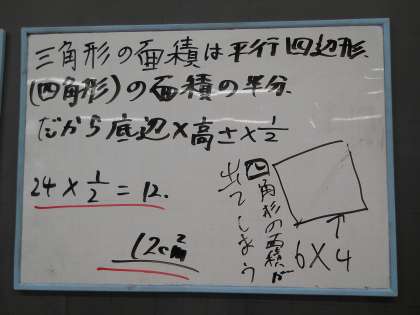 三角形の面積は平行四辺形
(四角形)の面積の半分.
だから底辺×高さ×1/2
24×1/2=12.
12cm²
四角形の面積が
出てしまう
6×4